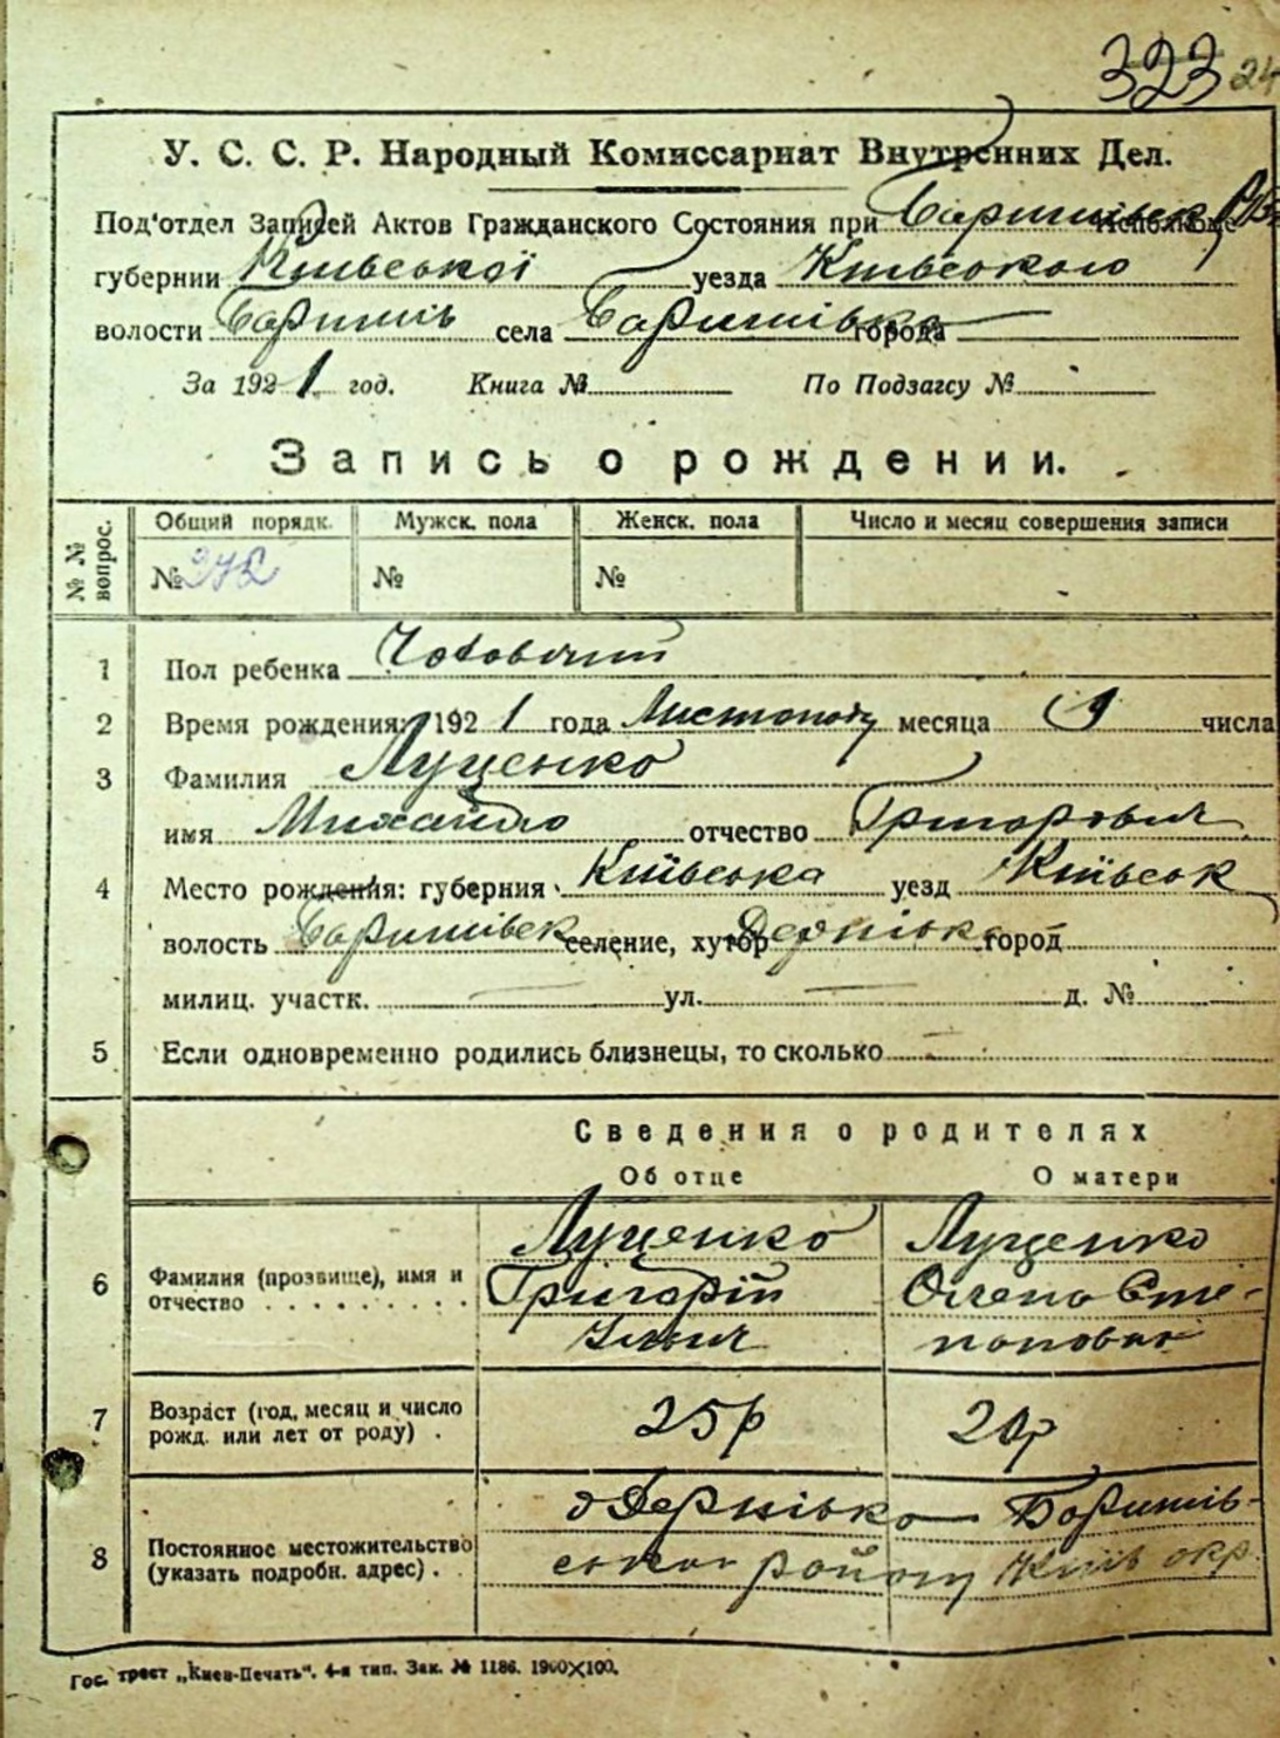 323 24
У. С. С. Р. Народный Комиссариат Внутренних Дел.
Под'отдел Записей Актов Гражданского Состояния при Исполкоме
губернии Київської уезда Київського
волости Баришів села Баришівка города
За 1921 год. Книга № По Подзагсу №
Запись о рождении.
№№ вопрос. Общий порядк. Мужск. пола Женск. пола Число и месяц совершения записи
№ № №
1 Пол ребенка Чоловічий
2 Время рождения: 1921 года Листопаду месяца числа
3 Фамилия Луценко
имя Михайло отчество Григорович
4 Место рождения: губерния Київська уезд Київськ
волость Баришівск селение, хутор Дернівка город
милиц. участк. — ул. — д. №
5 Если одновременно родились близнецы, то сколько —
Сведения о родителях
Об отце О матери
Луценко Луценко
6 Фамилия (прозвище), имя и Григорій Олена Сте-
отчество . . . . . . . . . Ільич пановна
7 Возраст (год, месяц и число 25р 20р
рожд. или лет от роду) .
8 Постоянное местожительство Дернівка Баришів-
(указать подробн. адрес) . . району Київ окр.
Гос. трест „Киев-Печать". 4-я тип. Зак. № 1186. 1900×100.